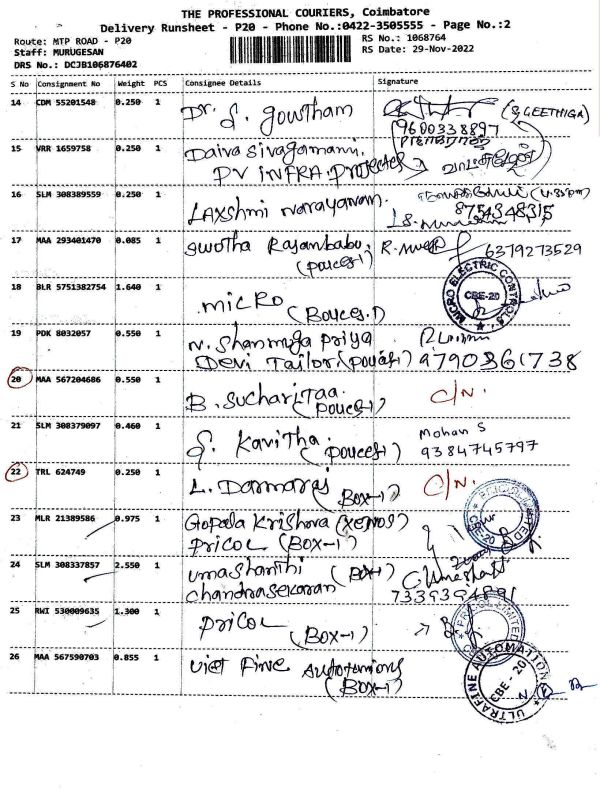 THE PROFESSIONAL COURIERS, Coimbatore
Delivery Runsheet - P20 - Phone No.:0422-3505555 - Page No.:2
Route: MTP ROAD - P20
RS No.: 1068764
Staff: MURUGESAN
RS Date: 29-Nov-2022
DRS No.: DCJB106876402
S No Consignment No Weight PCS Consignee Details Signature
14 CDM 55201548 0.250 1 Dr. S. Gowtham (S GEETHIGA)
9600338897
15 VRR 1659758 0.250 1 Daiva Sivagamani.
PV INFRA. Projects
16 SLM 308389559 0.250 1 Laxshmi Narayanan.
8754348315
17 MAA 293401470 0.085 1 Swotha Rajanbabu. 6379273529
(Pouces-1)
18 BLR 5751382754 1.640 1 MICRO (Bouces.1)
MICRO ELECTRIC CONTROLS
CBE-20
19 PDK 8032057 0.550 1 N. Shanmuga Priya
Devi Tailor (Pouces-1) 9790361738
20 MAA 567204686 0.550 1 B. Sucharitaa. C/N.
(Pouces-1)
21 SLM 308379097 0.460 1 S. Kavitha. (Pouces-1) Mohan S
9384745797
22 TRL 624749 0.250 1 L. Darmaraj (Box-1) C/N.
23 MLR 21389586 0.975 1 Gopala Krishna (XENOS)
Pricol (Box-1)
PRICOL LIMITED
CBE-20
24 SLM 308337857 2.550 1 Umashanthi (Box-1) C. Umashanthi
Chandrasekaran 7339394891
25 RWI 530009635 1.300 1 Pricol (Box-1)
PRICOL LIMITED
CBE-20
26 MAA 567590703 0.855 1 Fine
(Box-1)
ULTRAFINE AUTOMATION
CBE - 20